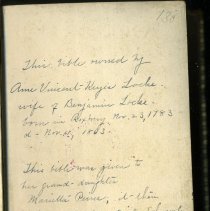 188
This bible owned by
Ame Vincent Keyes Locke.
wife of Benjamin Locke.
born in Roxbury, Nov. 23, 1783
d - Nov. 1863.
This bible was given to
her grand-daughter
Marietta Peirce, d - then